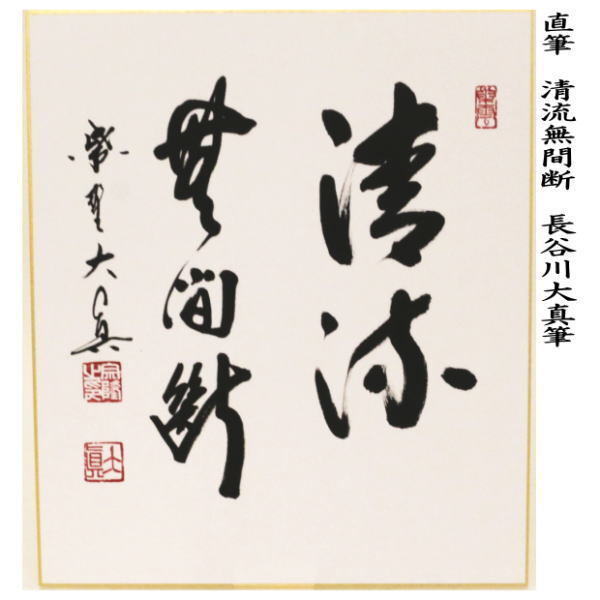 直筆　清流無間断　長谷川大真筆
清流
無間断
紫野大真
大真